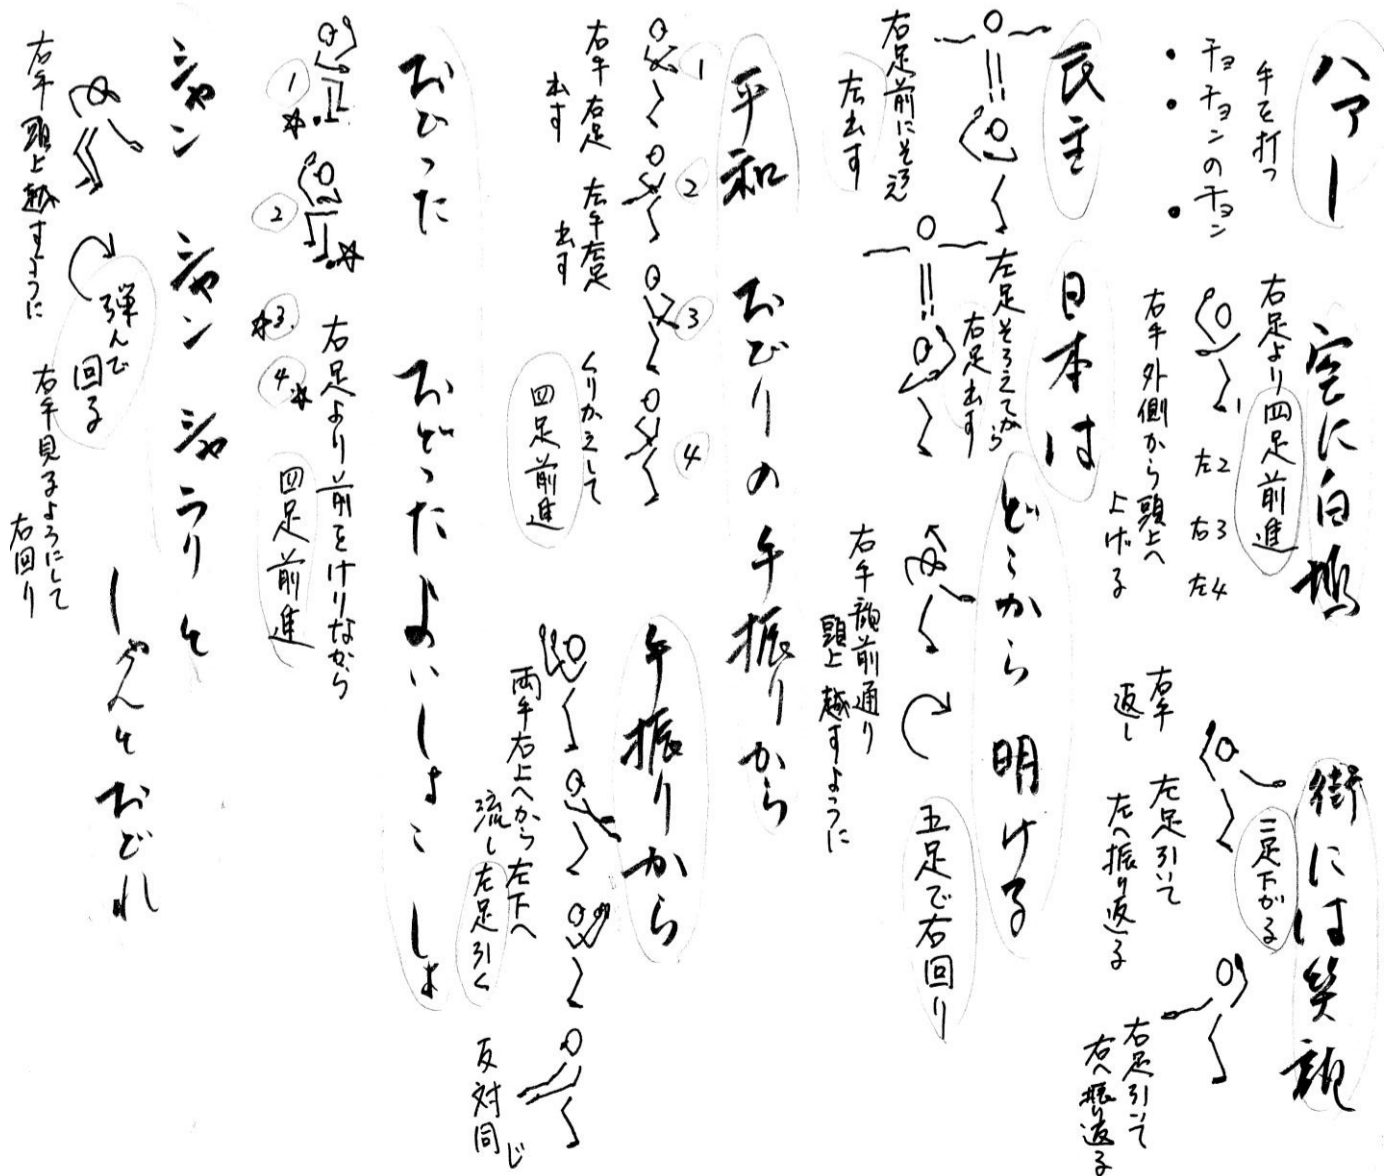 ハアー
空に白鳩
街には笑顔
手を打つ
チョチョンのチョン
右足より四足前進
左2
右3
左4
右手外側から頭上へ
上げる
二足下がる
右手
返し
左足引いて
左へ振り返る
右足引いて
右へ振り返る
民主
日本は
どこから
明ける
右足前にそろえ
左出す
左足そろえてから
右足出す
右手顔前通り
頭上越すように
五足で右回り
平和
おどりの手振りから
手振りから
1
2
3
4
右手右足
出す
左手左足
出す
くりかえして
四足前進
両手右上へから左下へ
流し左足引く
反対同じ
おどった
おどったよいしょこしょ
1
2
3
4
右足より前をけりながら
四足前進
シャン シャン シャラリと
しゃんとおどれ
弾んで
回る
右手頭上越すように
右手見るようにして
右回り